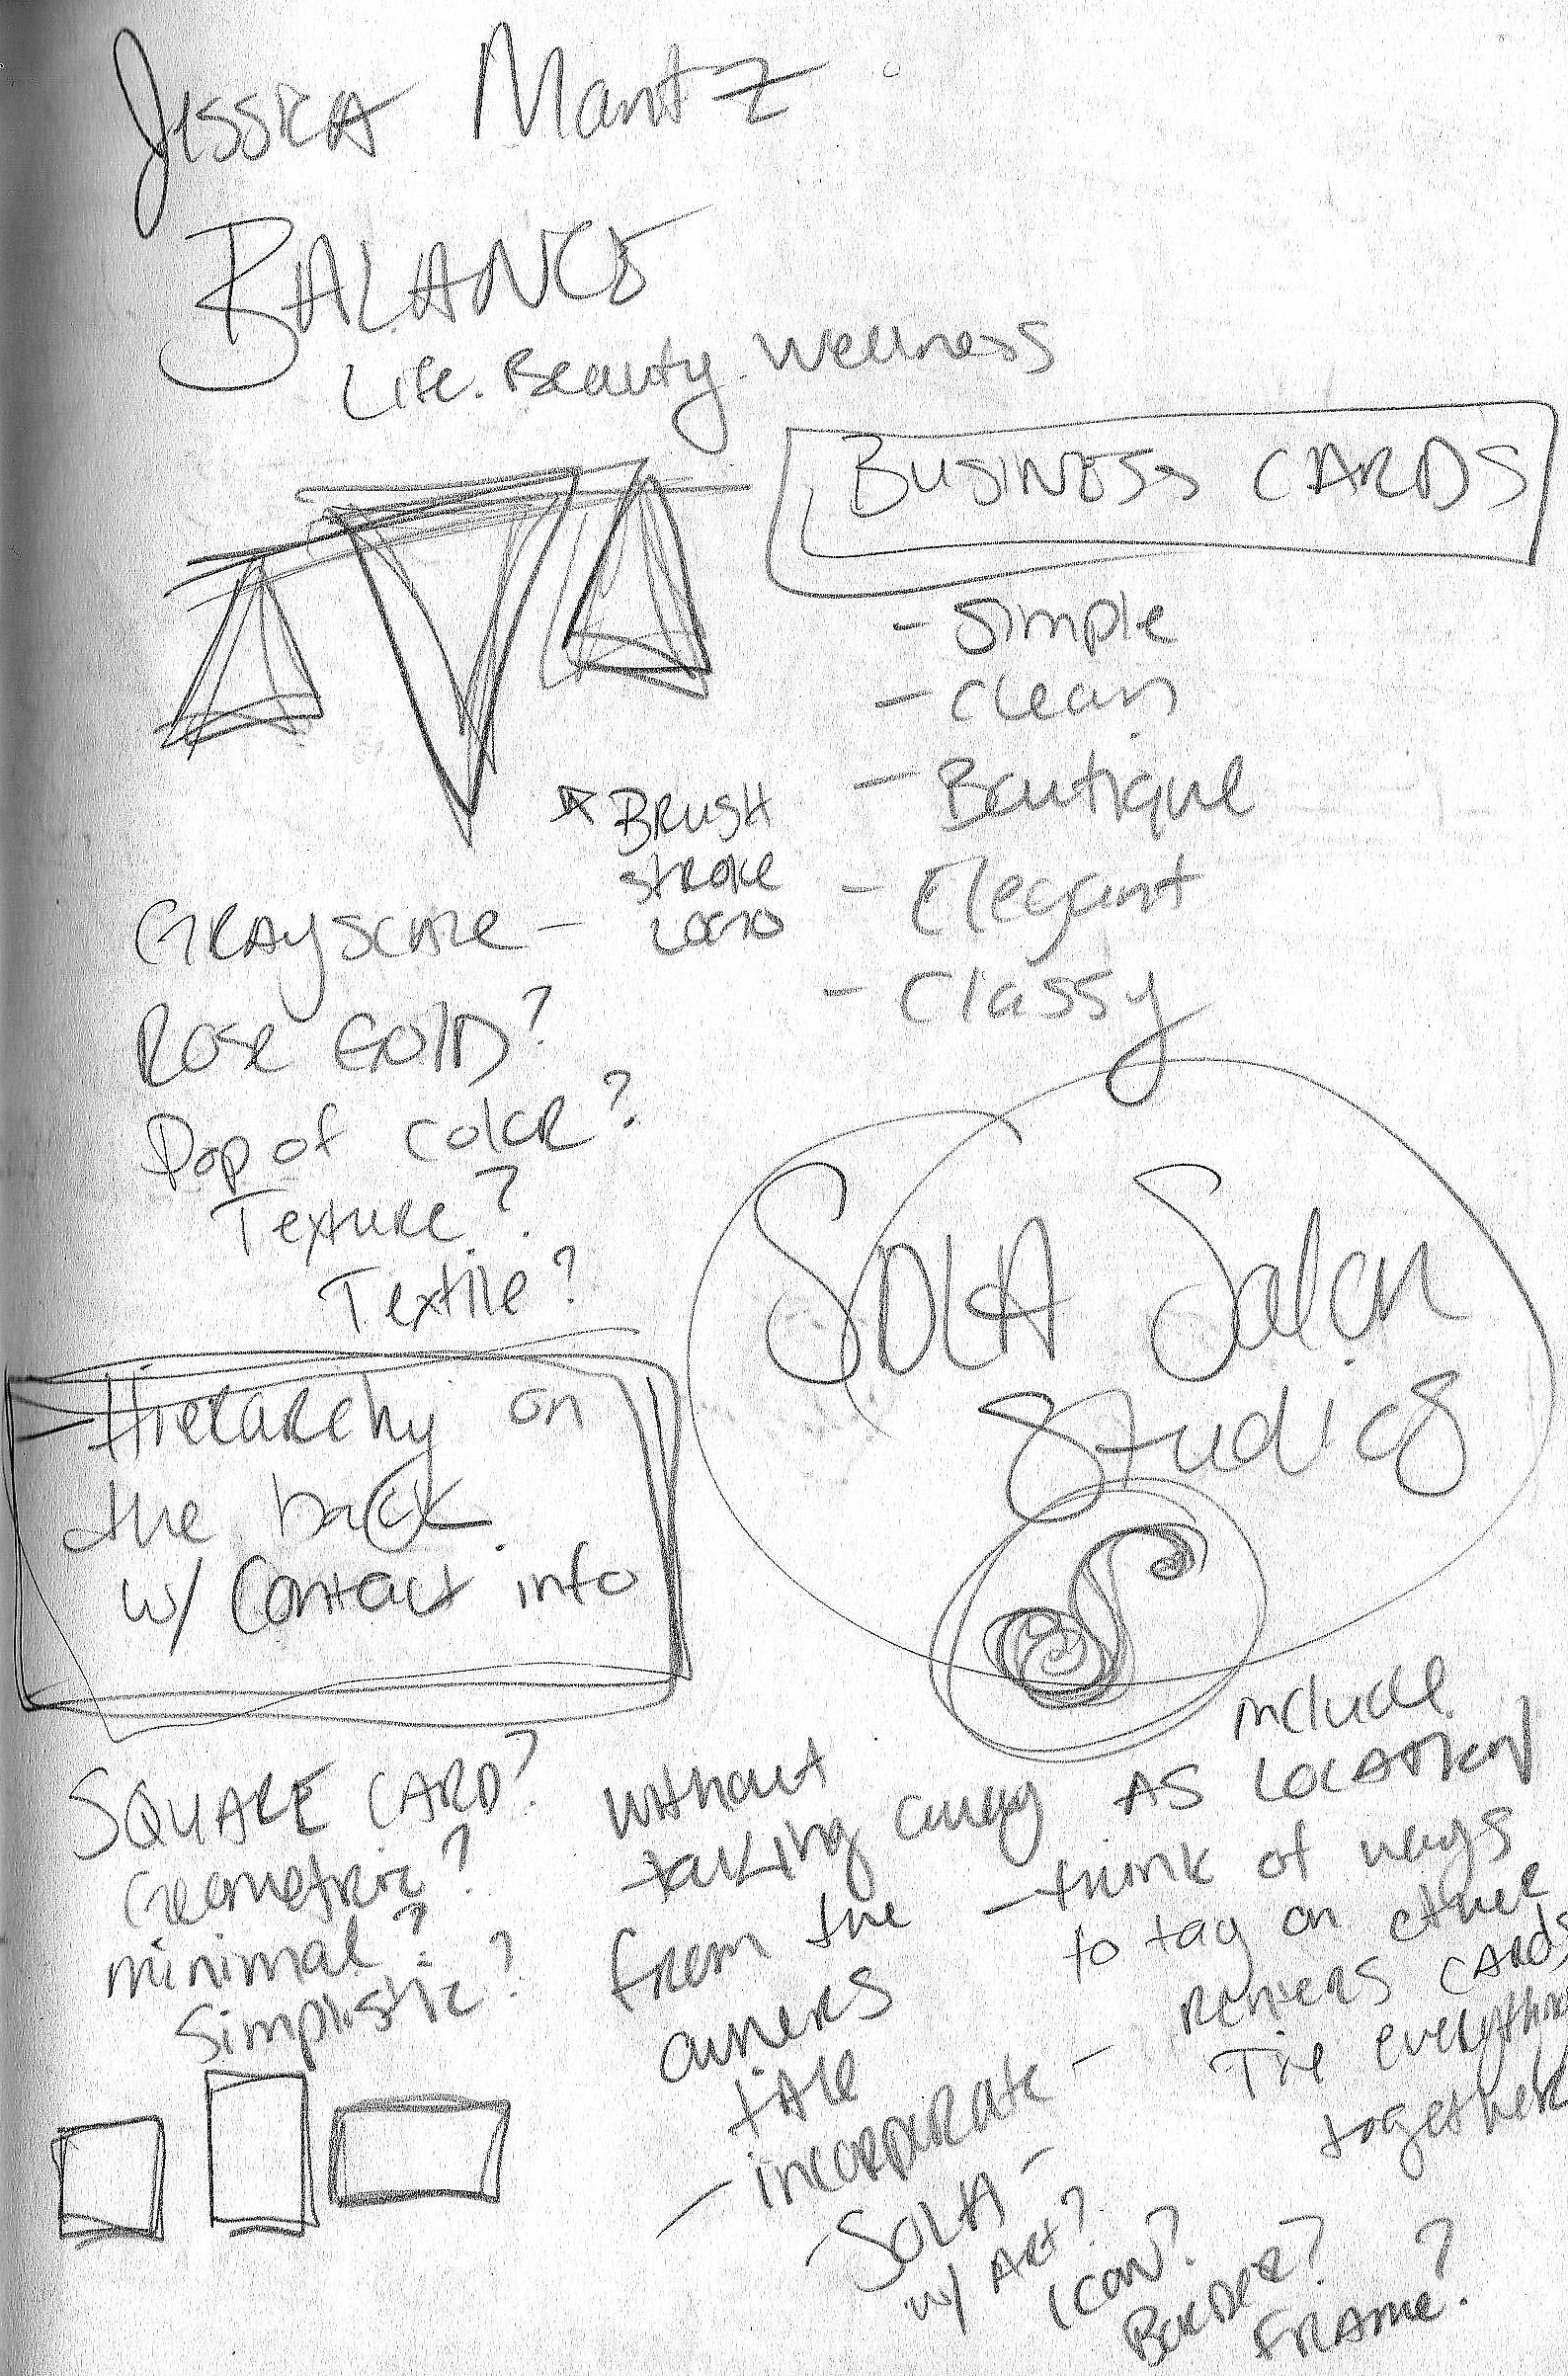 Jessica Mantz
BALANCE
Life. Beauty. Wellness
BUSINESS CARDS
- Simple
- Clean
- Boutique
- Elegant
- Classy
BRUSH
STROKE
LOGO
GRAYSCALE -
Rose GOLD?
Pop of COLOR?
Texture?
Textile?
SOLA Salon
Studios
Hierarchy on
the back
w/ Contact info
SQUARE CARD?
Geometric?
minimal?
Simplistic?
include
AS LOCATION
without
taking away
from the
owners
title
- think of ways
to tag on other
renters CARDS
- incorporate -
- SOLA -
w/ ART?
ICON?
BORDER?
FRAME?
Tie everything
together
?